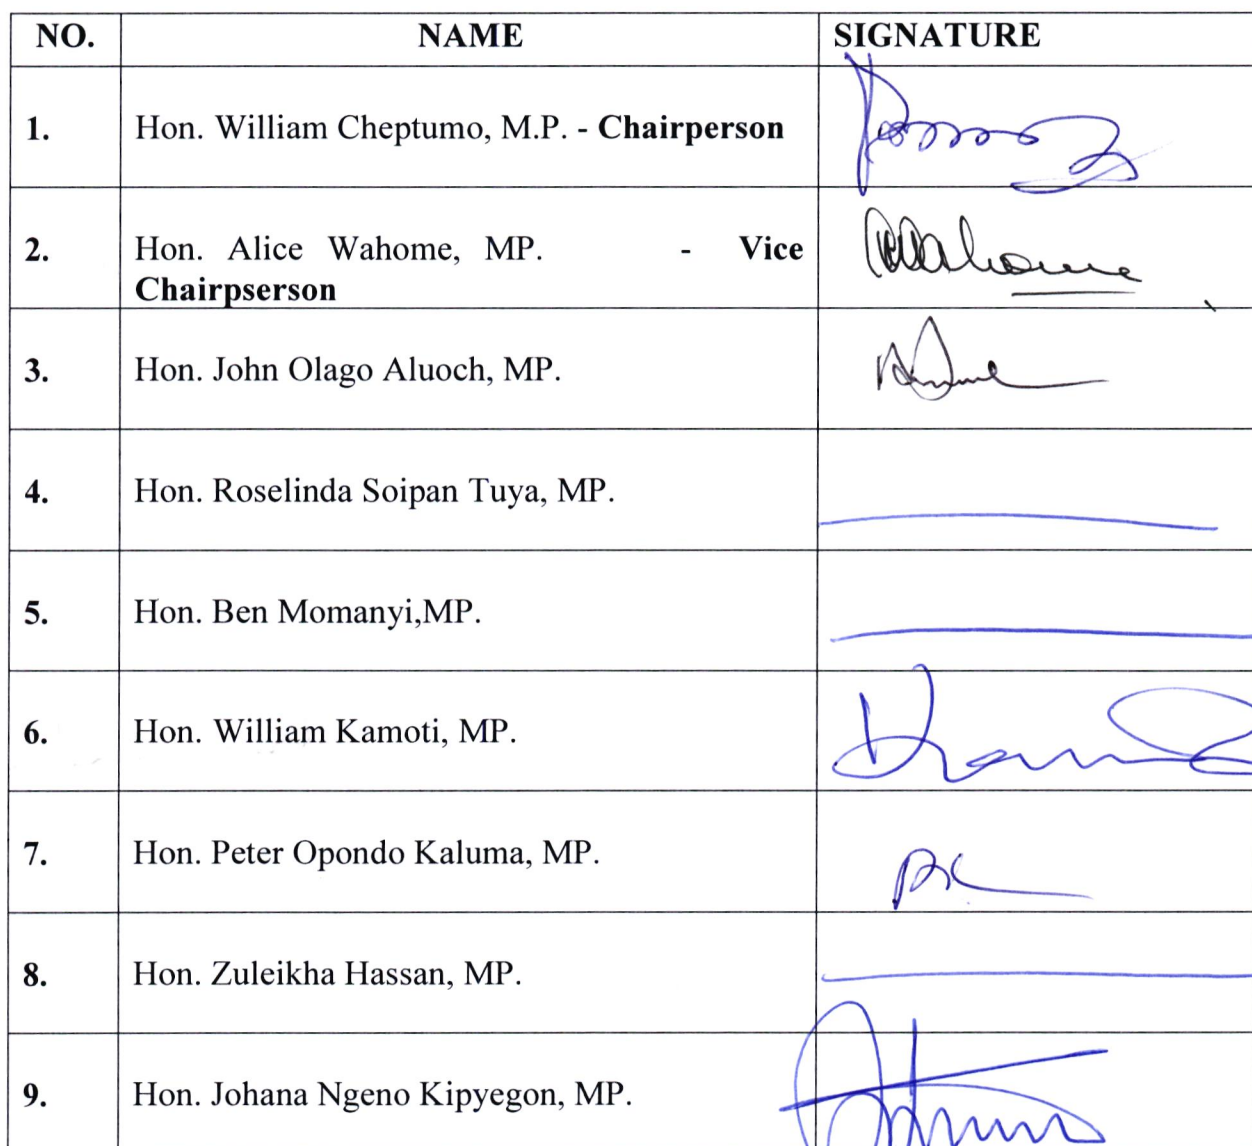 NO. NAME SIGNATURE
1. Hon. William Cheptumo, M.P. - Chairperson
2. Hon. Alice Wahome, MP. - Vice
Chairpserson
3. Hon. John Olago Aluoch, MP.
4. Hon. Roselinda Soipan Tuya, MP.
5. Hon. Ben Momanyi,MP.
6. Hon. William Kamoti, MP.
7. Hon. Peter Opondo Kaluma, MP.
8. Hon. Zuleikha Hassan, MP.
9. Hon. Johana Ngeno Kipyegon, MP.